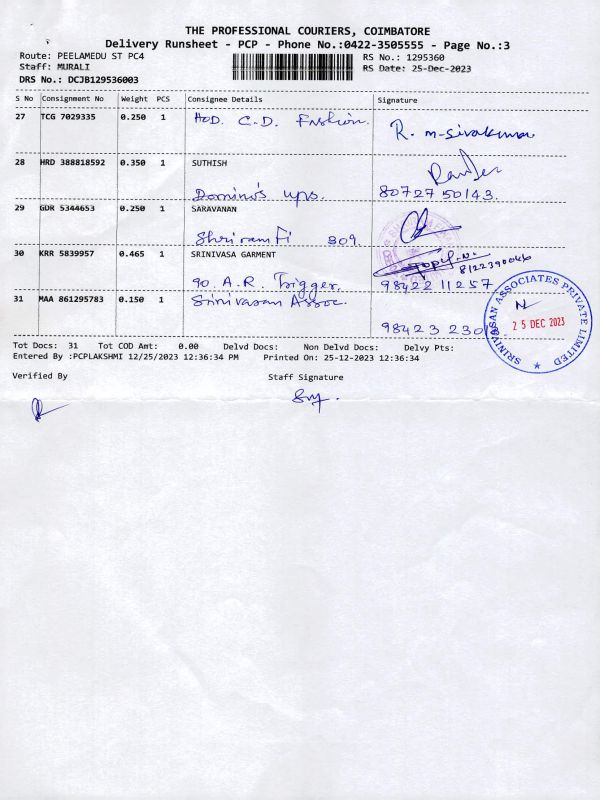 THE PROFESSIONAL COURIERS, COIMBATORE
Delivery Runsheet - PCP - Phone No.:0422-3505555 - Page No.:3
Route: PEELAMEDU ST PC4 RS No.: 1295360
Staff: MURALI RS Date: 25-Dec-2023
DRS No.: DCJB129536003
S No Consignment No Weight PCS Consignee Details Signature
27 TCG 7029335 0.250 1 HOD. C.D. Fashion.
R. m-sivakumar
28 HRD 388818592 0.350 1 SUTHISH
Domino's ups. 80727 50143.
29 GDR 5344653 0.250 1 SARAVANAN
Shriram Fi 309.
30 KRR 5839957 0.465 1 SRINIVASA GARMENT
8122390046
90. A.R. Trigger. 98422 11257
31 MAA 861295783 0.150 1 Srinivasan Assoc.
98423 230
SRINIVASAN ASSOCIATES PRIVATE LIMITED
25 DEC 2023
Tot Docs: 31 Tot COD Amt: 0.00 Delvd Docs: Non Delvd Docs: Delvy Pts:
Entered By :PCPLAKSHMI 12/25/2023 12:36:34 PM Printed On: 25-12-2023 12:36:34
Verified By Staff Signature